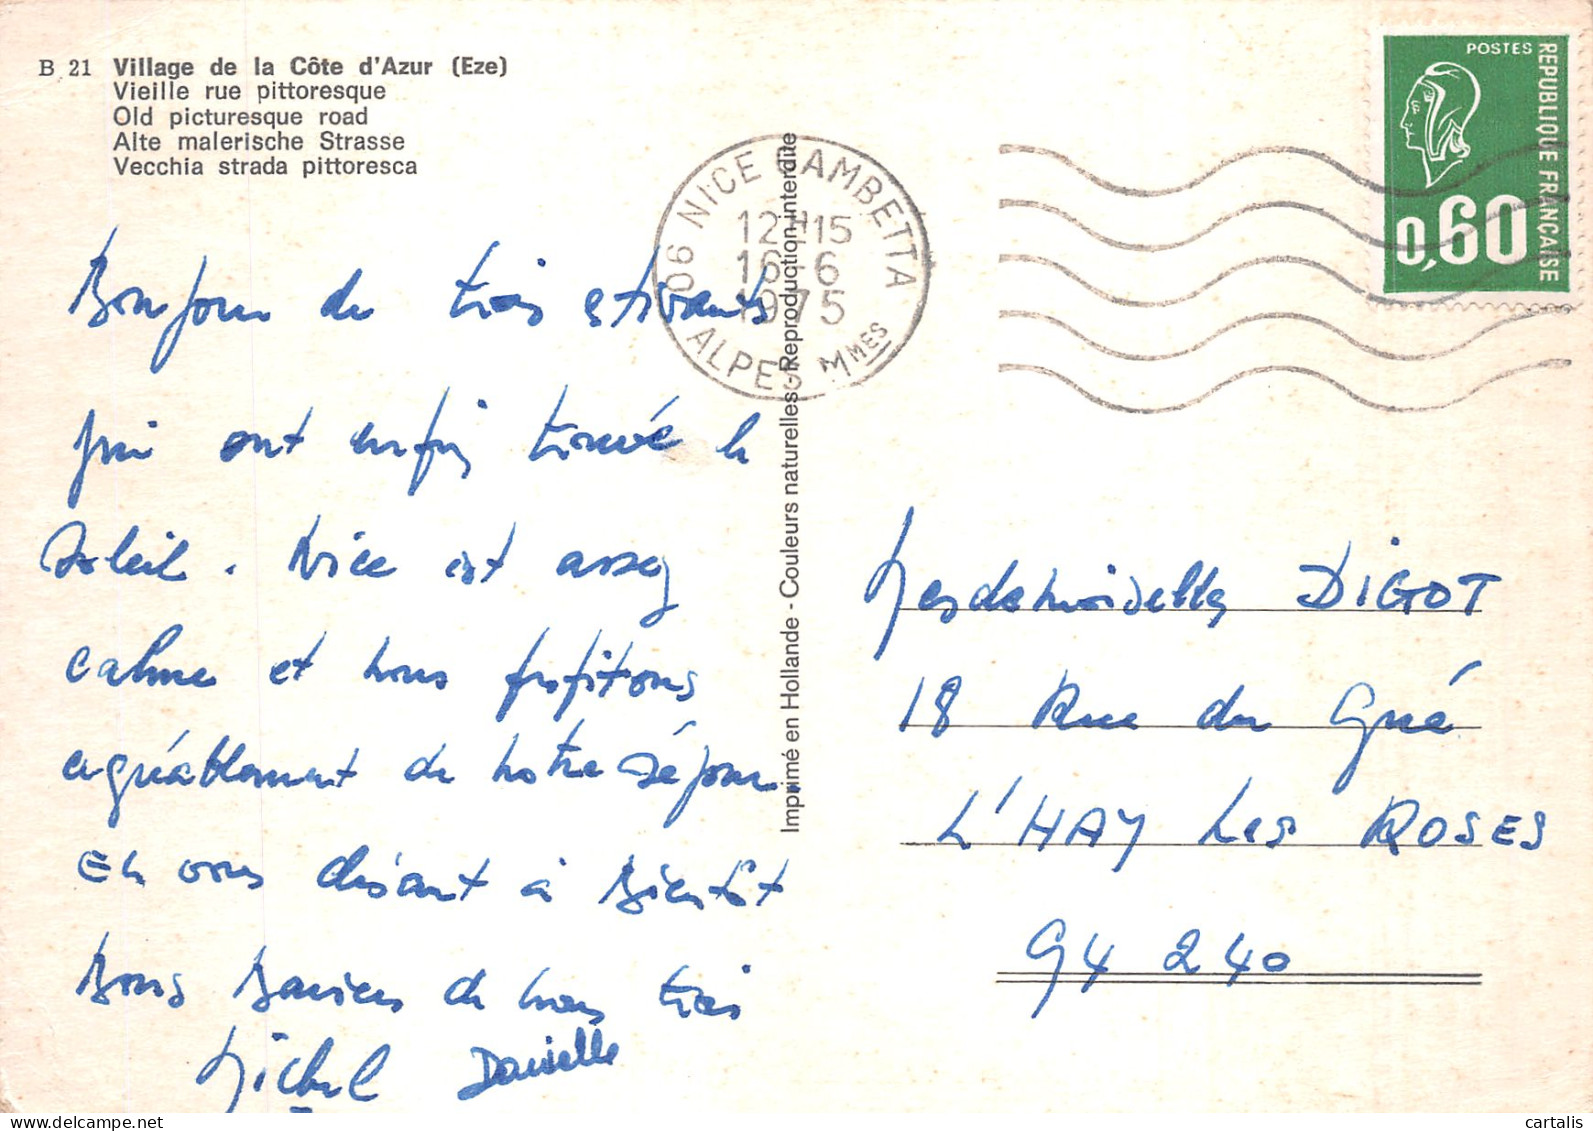 B 21 Village de la Côte d'Azur (Eze)
Vieille rue pittoresque
Old picturesque road
Alte malerische Strasse
Vecchia strada pittoresca
POSTES
REPUBLIQUE FRANÇAISE
0,60
06 NICE GAMBETTA
12H15
16-6
1975
ALPES MMES
Imprimé en Hollande - Couleurs naturelles - Reproduction interdite
Bonjour de trois estivants
qui ont enfin trouvé le
soleil. Nice est assez
calme et nous profitons
agréablement de notre séjour.
En vous disant à Bientôt
Bons Baisers de nous trois
Michel Danielle
Mesdemoiselles DIGOT
18 Rue du Gué
L'HAY Les ROSES
94 240
cartalis
delcampe.net